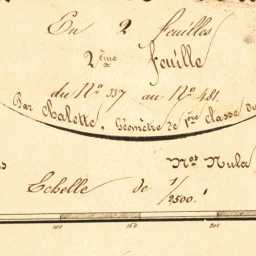 En 2 feuilles
2ème feuille
du N° 337 au N° 481.
Par Chalotte, Géomètre de 1ère classe du
Echelle de 1/2500.
100 150 200